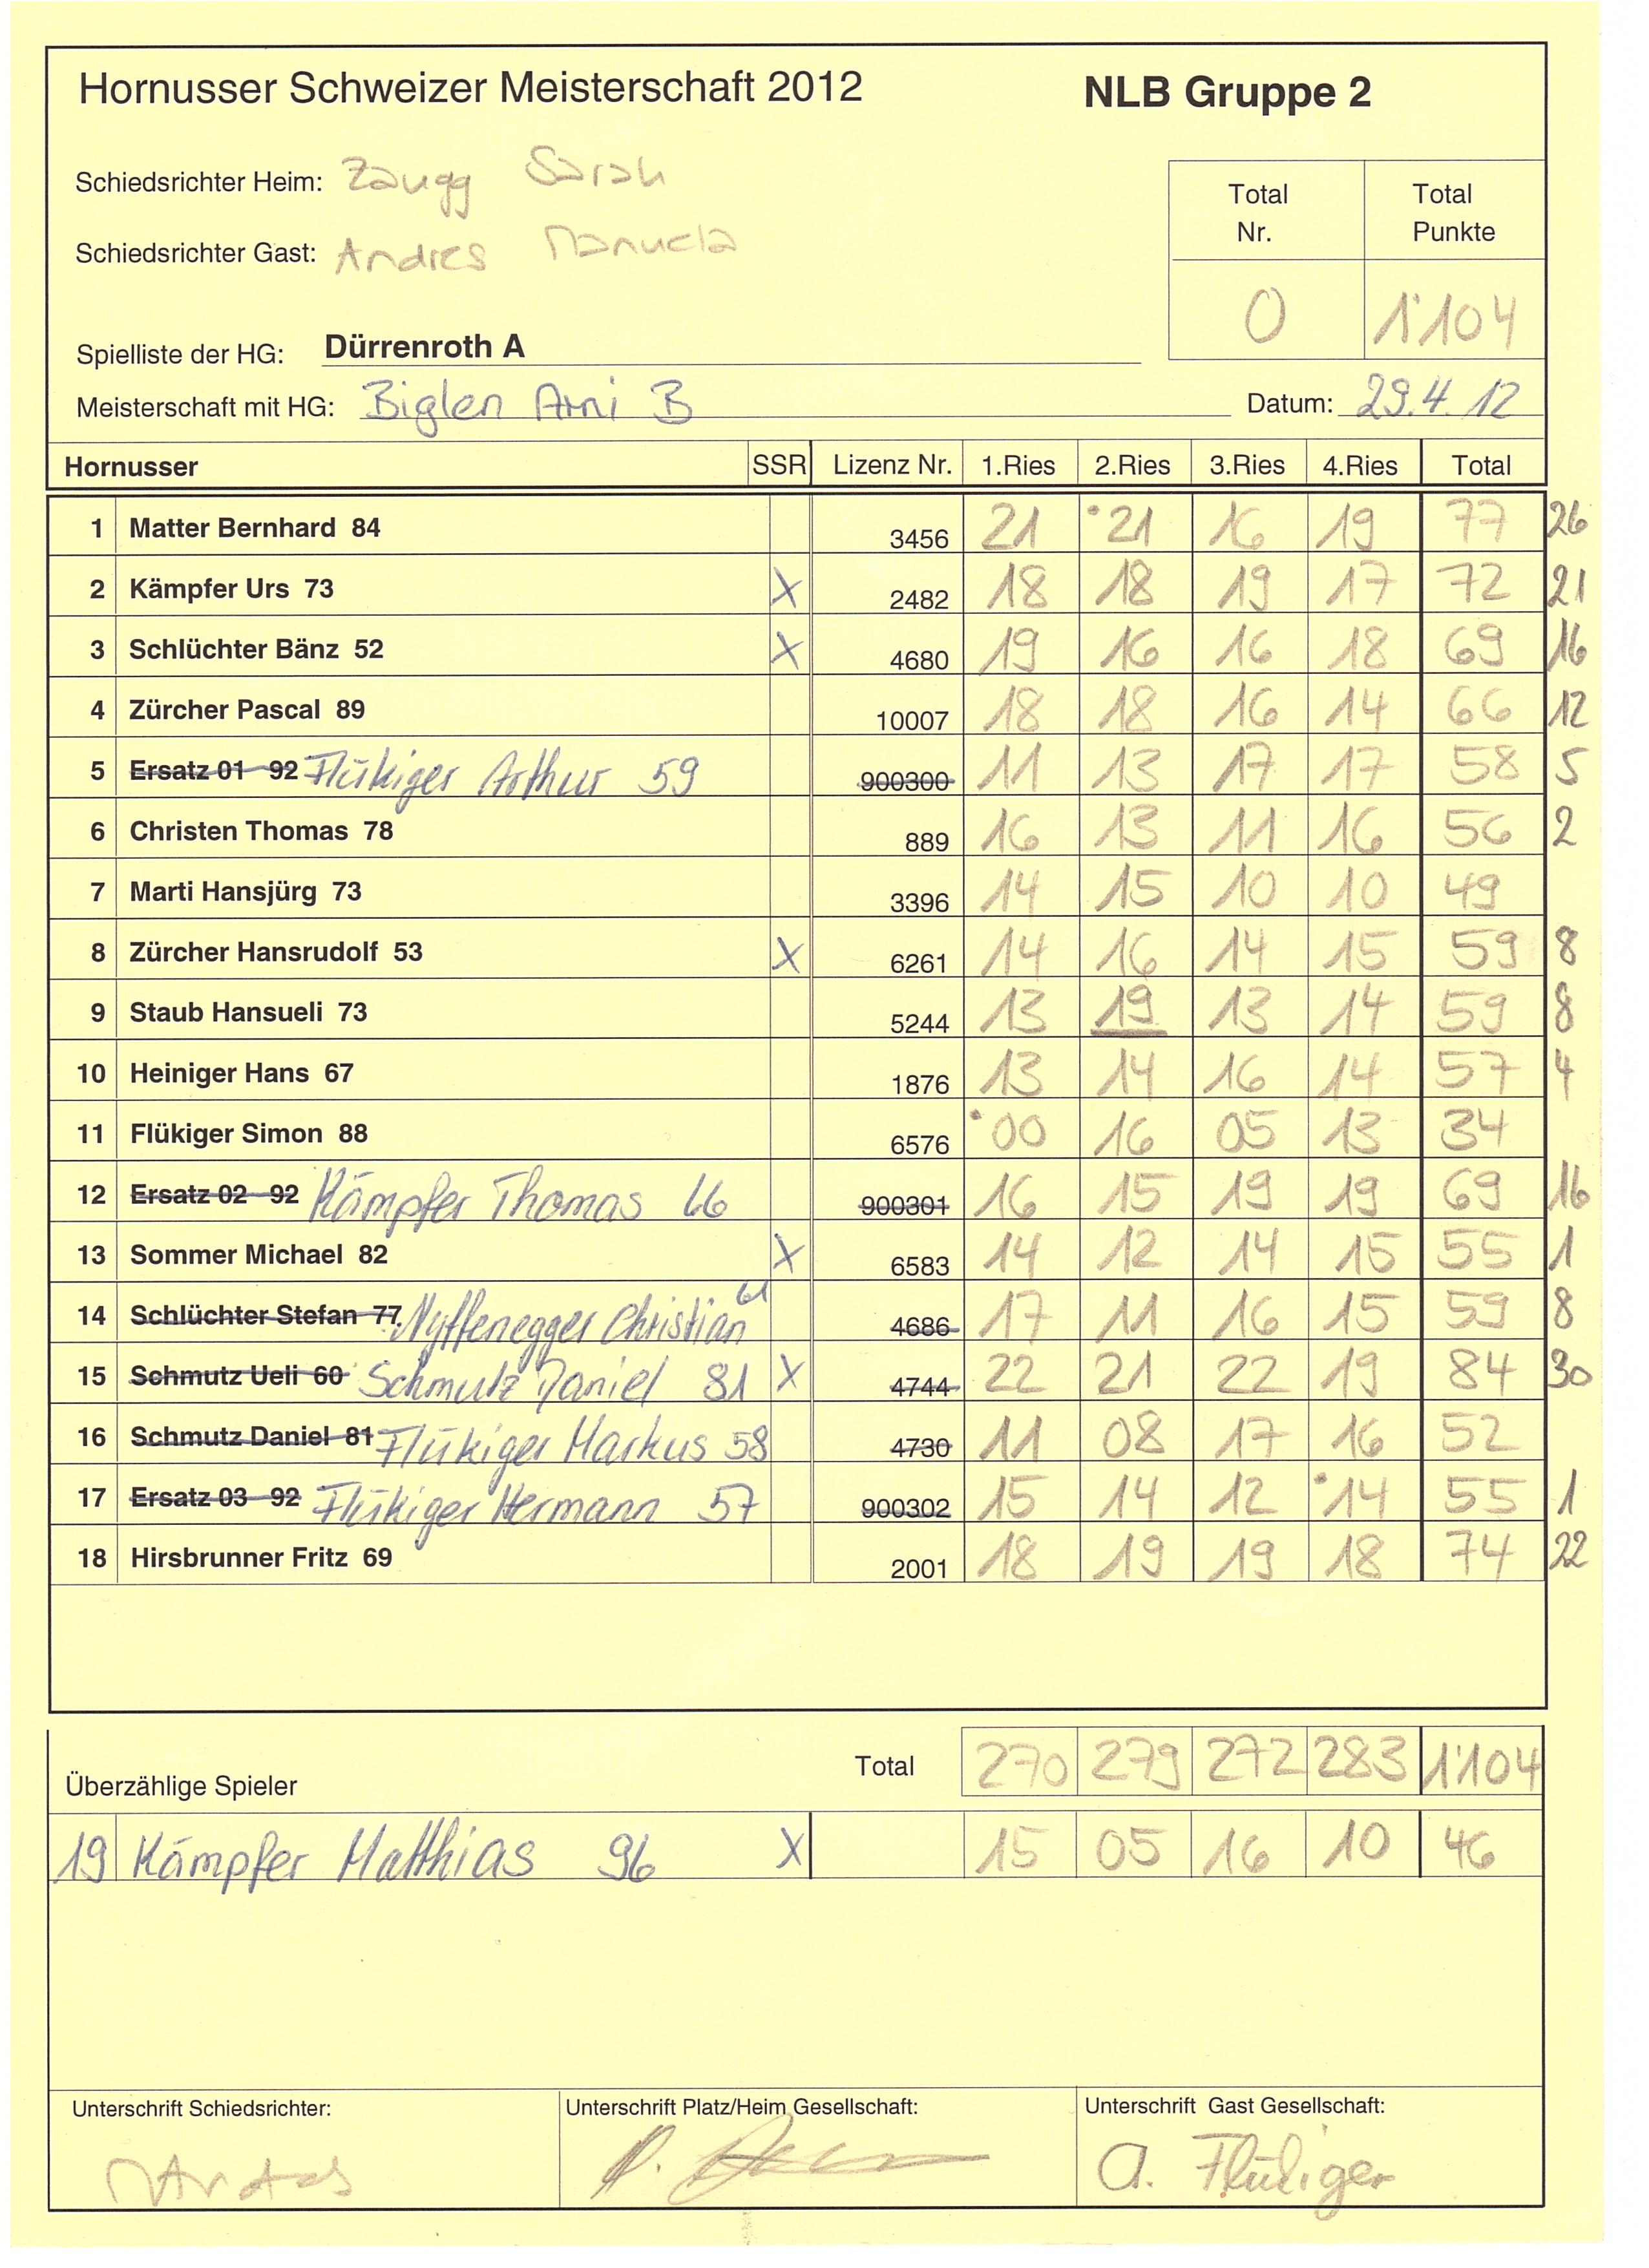 Hornusser Schweizer Meisterschaft 2012 NLB Gruppe 2
Schiedsrichter Heim: Zaugg Sarah
Schiedsrichter Gast: Andres Manuela
Total Nr. Total Punkte
0 1'104
Spielliste der HG: Dürrenroth A
Meisterschaft mit HG: Biglen Arni B Datum: 29.4.12
Hornusser SSR Lizenz Nr. 1.Ries 2.Ries 3.Ries 4.Ries Total
1 Matter Bernhard 84 3456 21 21 16 19 77 26
2 Kämpfer Urs 73 X 2482 18 18 19 17 72 21
3 Schlüchter Bänz 52 X 4680 19 16 16 18 69 16
4 Zürcher Pascal 89 10007 18 18 16 14 66 12
5 Ersatz 01 92 Flükiger Arthur 59 900300 11 13 17 17 58 5
6 Christen Thomas 78 889 16 13 11 16 56 2
7 Marti Hansjürg 73 3396 14 15 10 10 49
8 Zürcher Hansrudolf 53 X 6261 14 16 14 15 59 8
9 Staub Hansueli 73 5244 13 19 13 14 59 8
10 Heiniger Hans 67 1876 13 14 16 14 57 4
11 Flükiger Simon 88 6576 00 16 05 13 34
12 Ersatz 02 92 Kämpfer Thomas 66 900301 16 15 19 19 69 16
13 Sommer Michael 82 X 6583 14 12 14 15 55 1
14 Schlüchter Stefan 77 Nyffenegger Christian 61 4686 17 11 16 15 59 8
15 Schmutz Ueli 60 Schmutz Daniel 81 X 4744 22 21 22 19 84 30
16 Schmutz Daniel 81 Flükiger Markus 58 4730 11 08 17 16 52
17 Ersatz 03 92 Flükiger Hermann 57 900302 15 14 12 14 55 1
18 Hirsbrunner Fritz 69 2001 18 19 19 18 74 22
Überzählige Spieler Total 270 279 272 283 1'104
19 Kämpfer Matthias 96 X 15 05 16 10 46
Unterschrift Schiedsrichter: Unterschrift Platz/Heim Gesellschaft: Unterschrift Gast Gesellschaft:
A. Flükiger